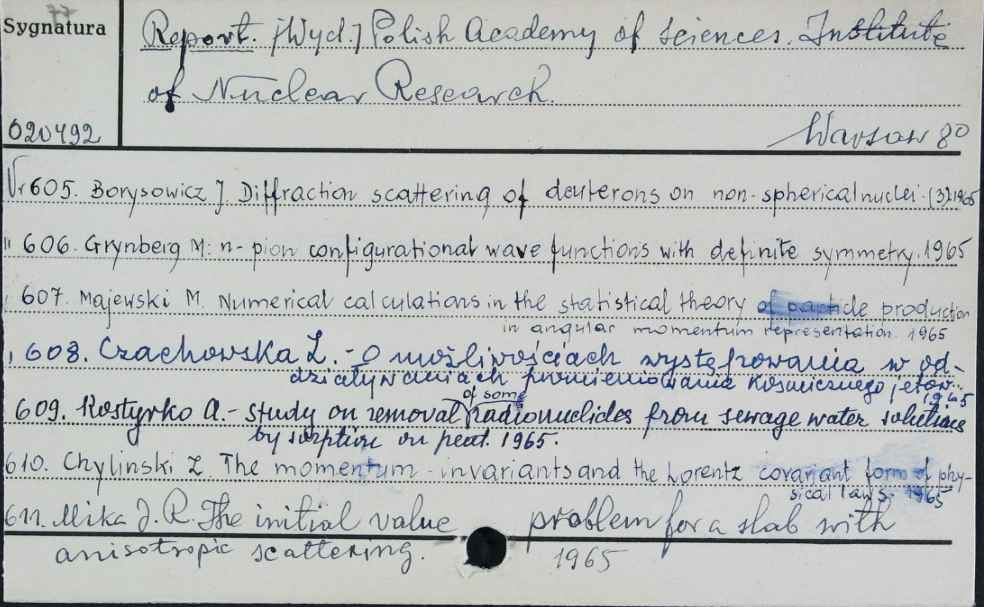 77
Sygnatura
Report. [Wyd.] Polish Academy of Sciences. Institute
of Nuclear Research.
020492
Warsaw 80
Nr 605. Borysowicz J. Diffraction scattering of deuterons on non-spherical nuclei. (3) 1965
" 606. Grynberg M: n-pion configurational wave functions with definite symmetry. 1965
, 607. Majewski M. Numerical calculations in the statistical theory of particle production
in angular momentum representation. 1965
, 608. Czachowska Z. - O możliwościach występowania w od-
działywaniach promieniowania kosmicznego jetów. 1965
of some
609. Kostyrko A. - Study on removal radionuclides from sewage water solutions
by sorption on peat. 1965.
610. Chylinski Z. The momentum-invariants and the Lorentz covariant form of phy-
sical laws. 1965
611. Mika J. R. The initial value problem for a slab with
anisotropic scattering. 1965